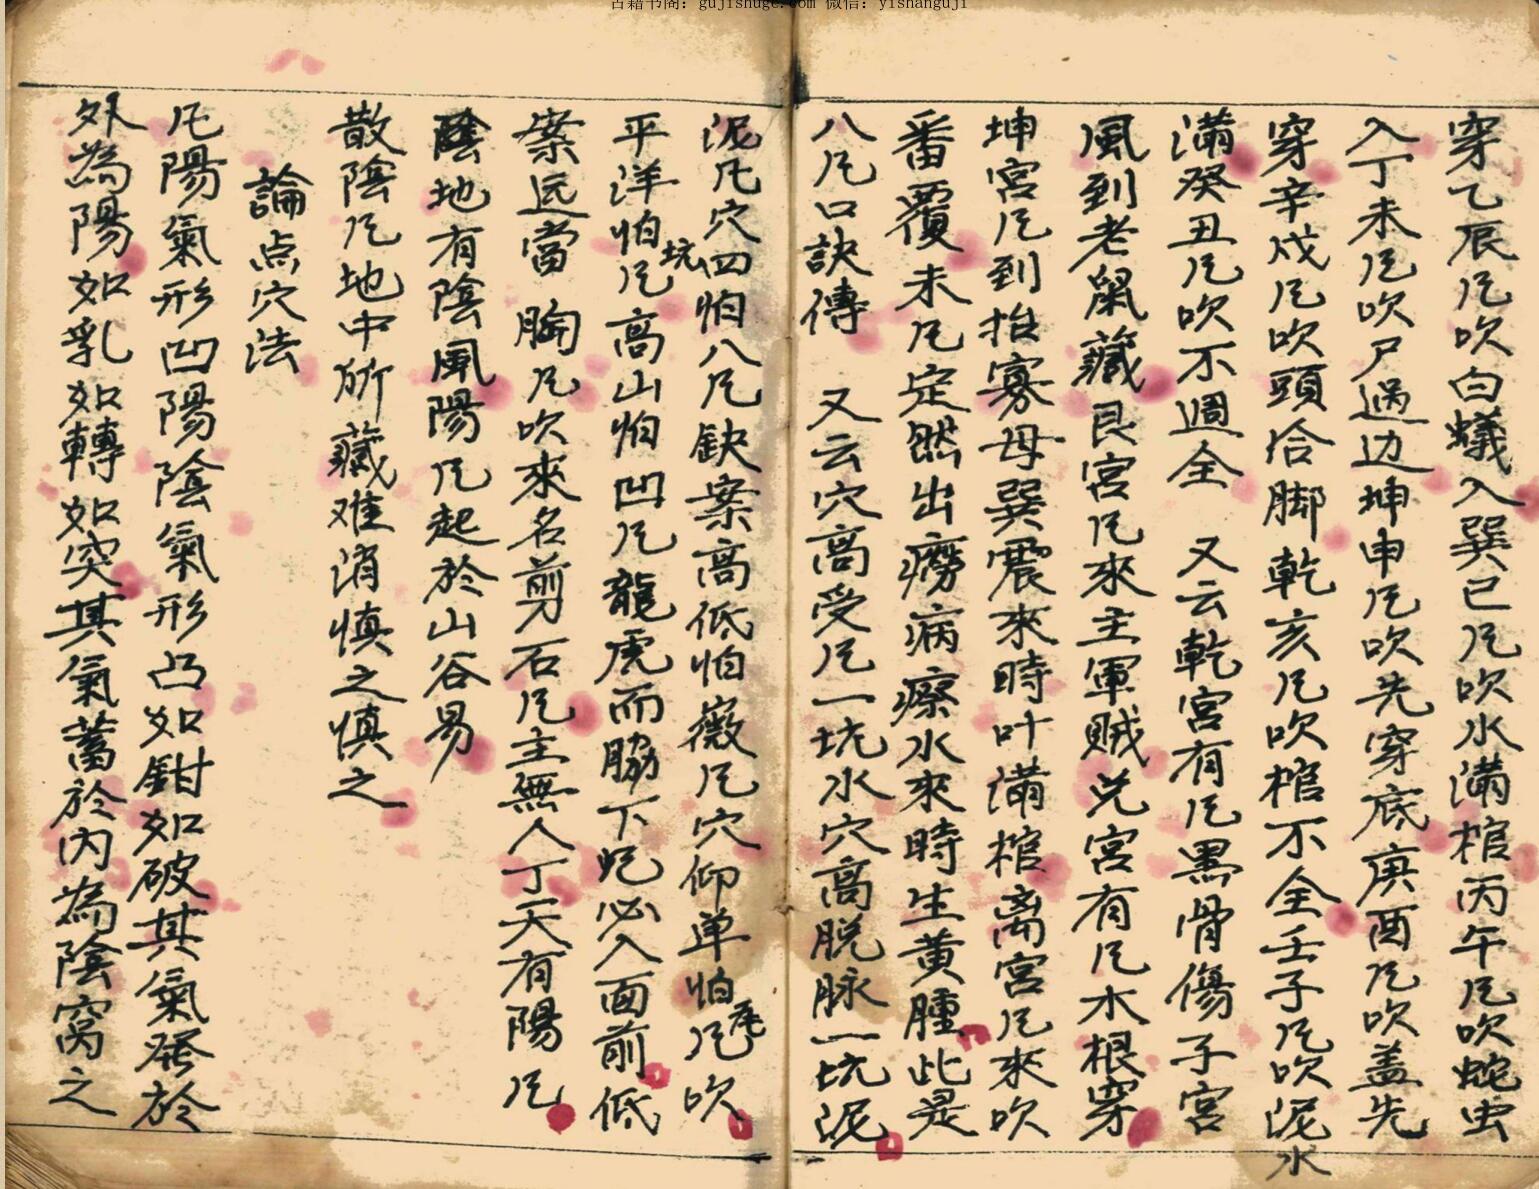 古籍书阁：gujishuge.com 微信：yishanguji
穿乙辰凢吹白蟻入巽巳凢吹水滿棺丙午凢吹蛇虫
入丁未凢吹尸過边坤申凢吹先穿底庚酉凢吹盖先
穿辛戍凢吹頭合脚乾亥凢吹棺不全壬子凢吹泥水
滿癸丑凢吹不週全 又云乾宮有凢黑骨傷子宮
風到老鼠藏艮宮凢來主軍賊兌宮有凢木根穿
坤宮凢到抬寡母巽震來時叶滿棺离宮凢來吹
番覆未凢定然出癆病瘵水來時生黃腫此是
八凢口訣傳 又云穴高受凢一坑水穴高脱脉一坑泥
泥凢穴四怕八凢缺案高低怕嶶凢穴仰单怕尾凢吹
平洋怕坑凢高山怕凹凢龍虎而脇下凢必入面前低
案远當胸凢吹來名剪石凢主無人丁天有陽凢
陰地有陰風陽凢起於山谷易
散陰凢地中所藏难消慎之慎之
論点穴法
凢陽氣形凹陽陰氣形凸如鉗如破其氣發於
外為陽如乳如轉如突其氣蓄於內為陰窩之